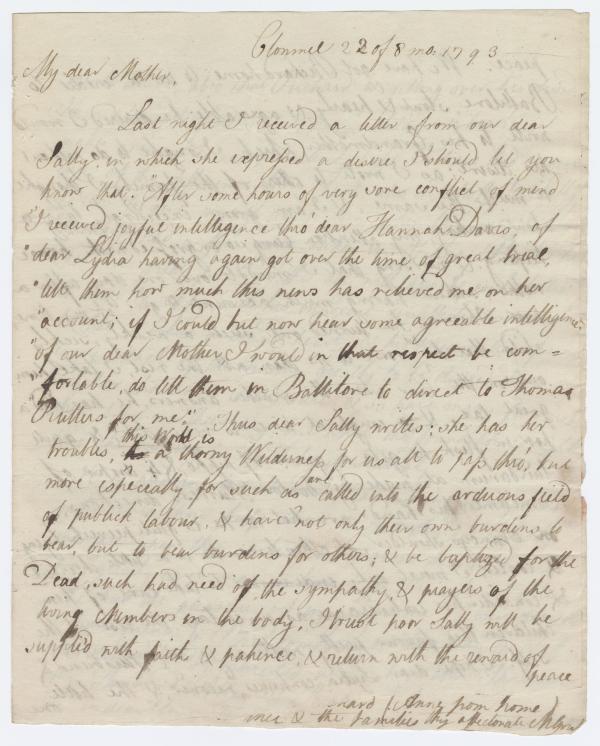 Clonmel 22 of 8 mo: 1793
My dear Mother,
Last night I received a letter from our dear
Sally, in which she expressed a desire I should let you
know that. "After some hours of very sore conflict of mind
"I received joyful intelligence thro' dear Hannah Davis, of
"dear Lydia having again got over the time of great trial,
"tell them how much this news has relieved me, on her
"account; if I could but now hear some agreeable intelligence
"of our dear Mother, I would in that respect be com=
"fortable, do tell them in Ballitore to direct to Thomas
Rutters for me." Thus dear Sally writes; she has her
this World is
troubles, a thorny Wilderness for us all to pass thro', but
are
more especially for such as called into the arduous field
of publick labour, & have not only their own burdens to
bear, but to bear burdens for others; & be baptized for the
Dead, such had need of the sympathy, & prayers of the
living Members in the body, I trust poor Sally will be
supplied with faith & patience, & return with the reward of
peace
ward (Anne from home)
& the families thy affectionate